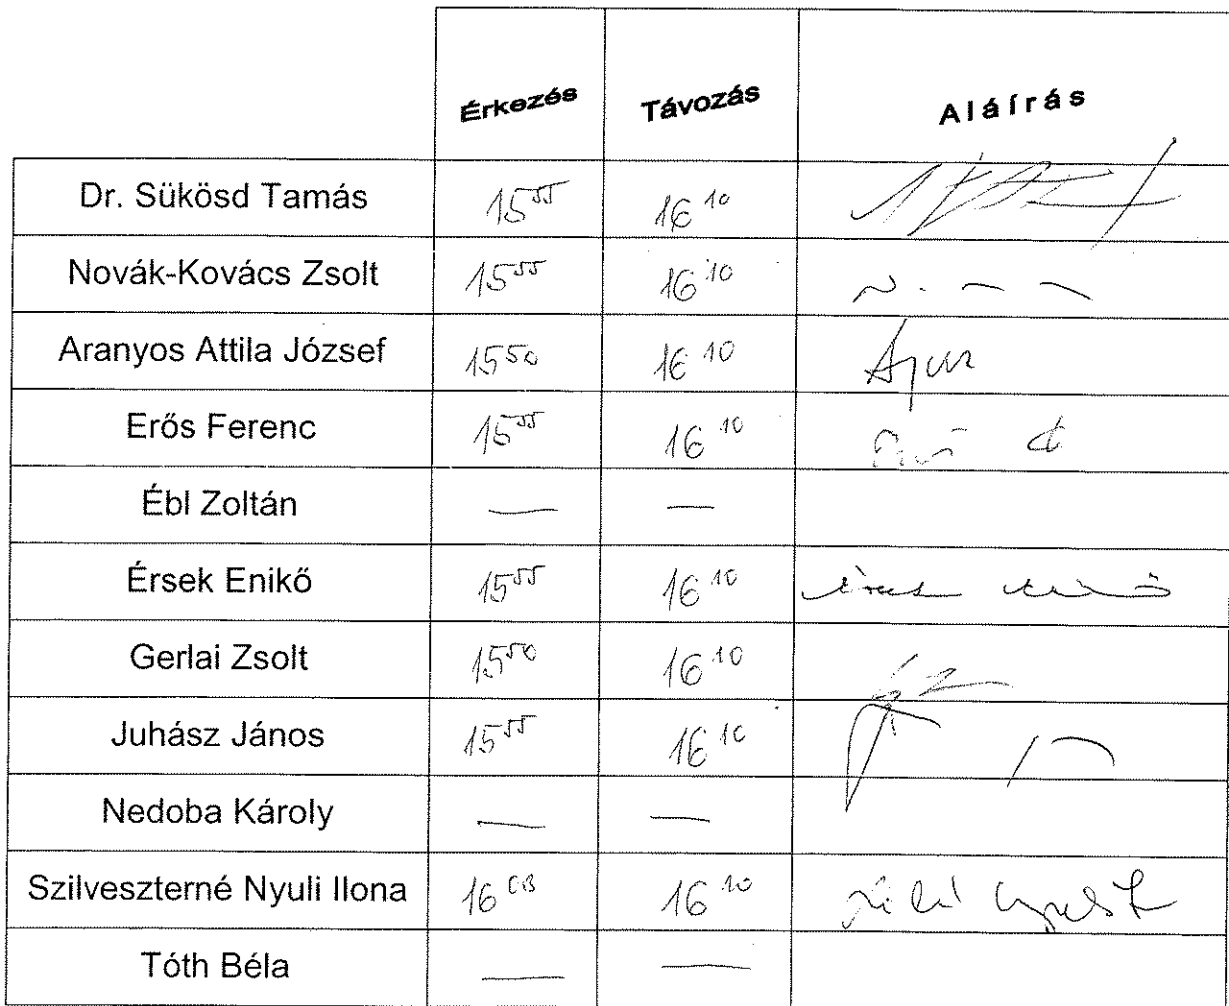 Érkezés Távozás Aláírás
Dr. Sükösd Tamás 15⁵⁵ 16¹⁰
Novák-Kovács Zsolt 15⁵⁵ 16¹⁰
Aranyos Attila József 15⁵⁰ 16¹⁰
Erős Ferenc 15⁵⁵ 16¹⁰
Ébl Zoltán — —
Érsek Enikő 15⁵⁵ 16¹⁰
Gerlai Zsolt 15⁵⁰ 16¹⁰
Juhász János 15⁵⁵ 16¹⁰
Nedoba Károly — —
Szilveszterné Nyuli Ilona 16 16¹⁰
Tóth Béla — —